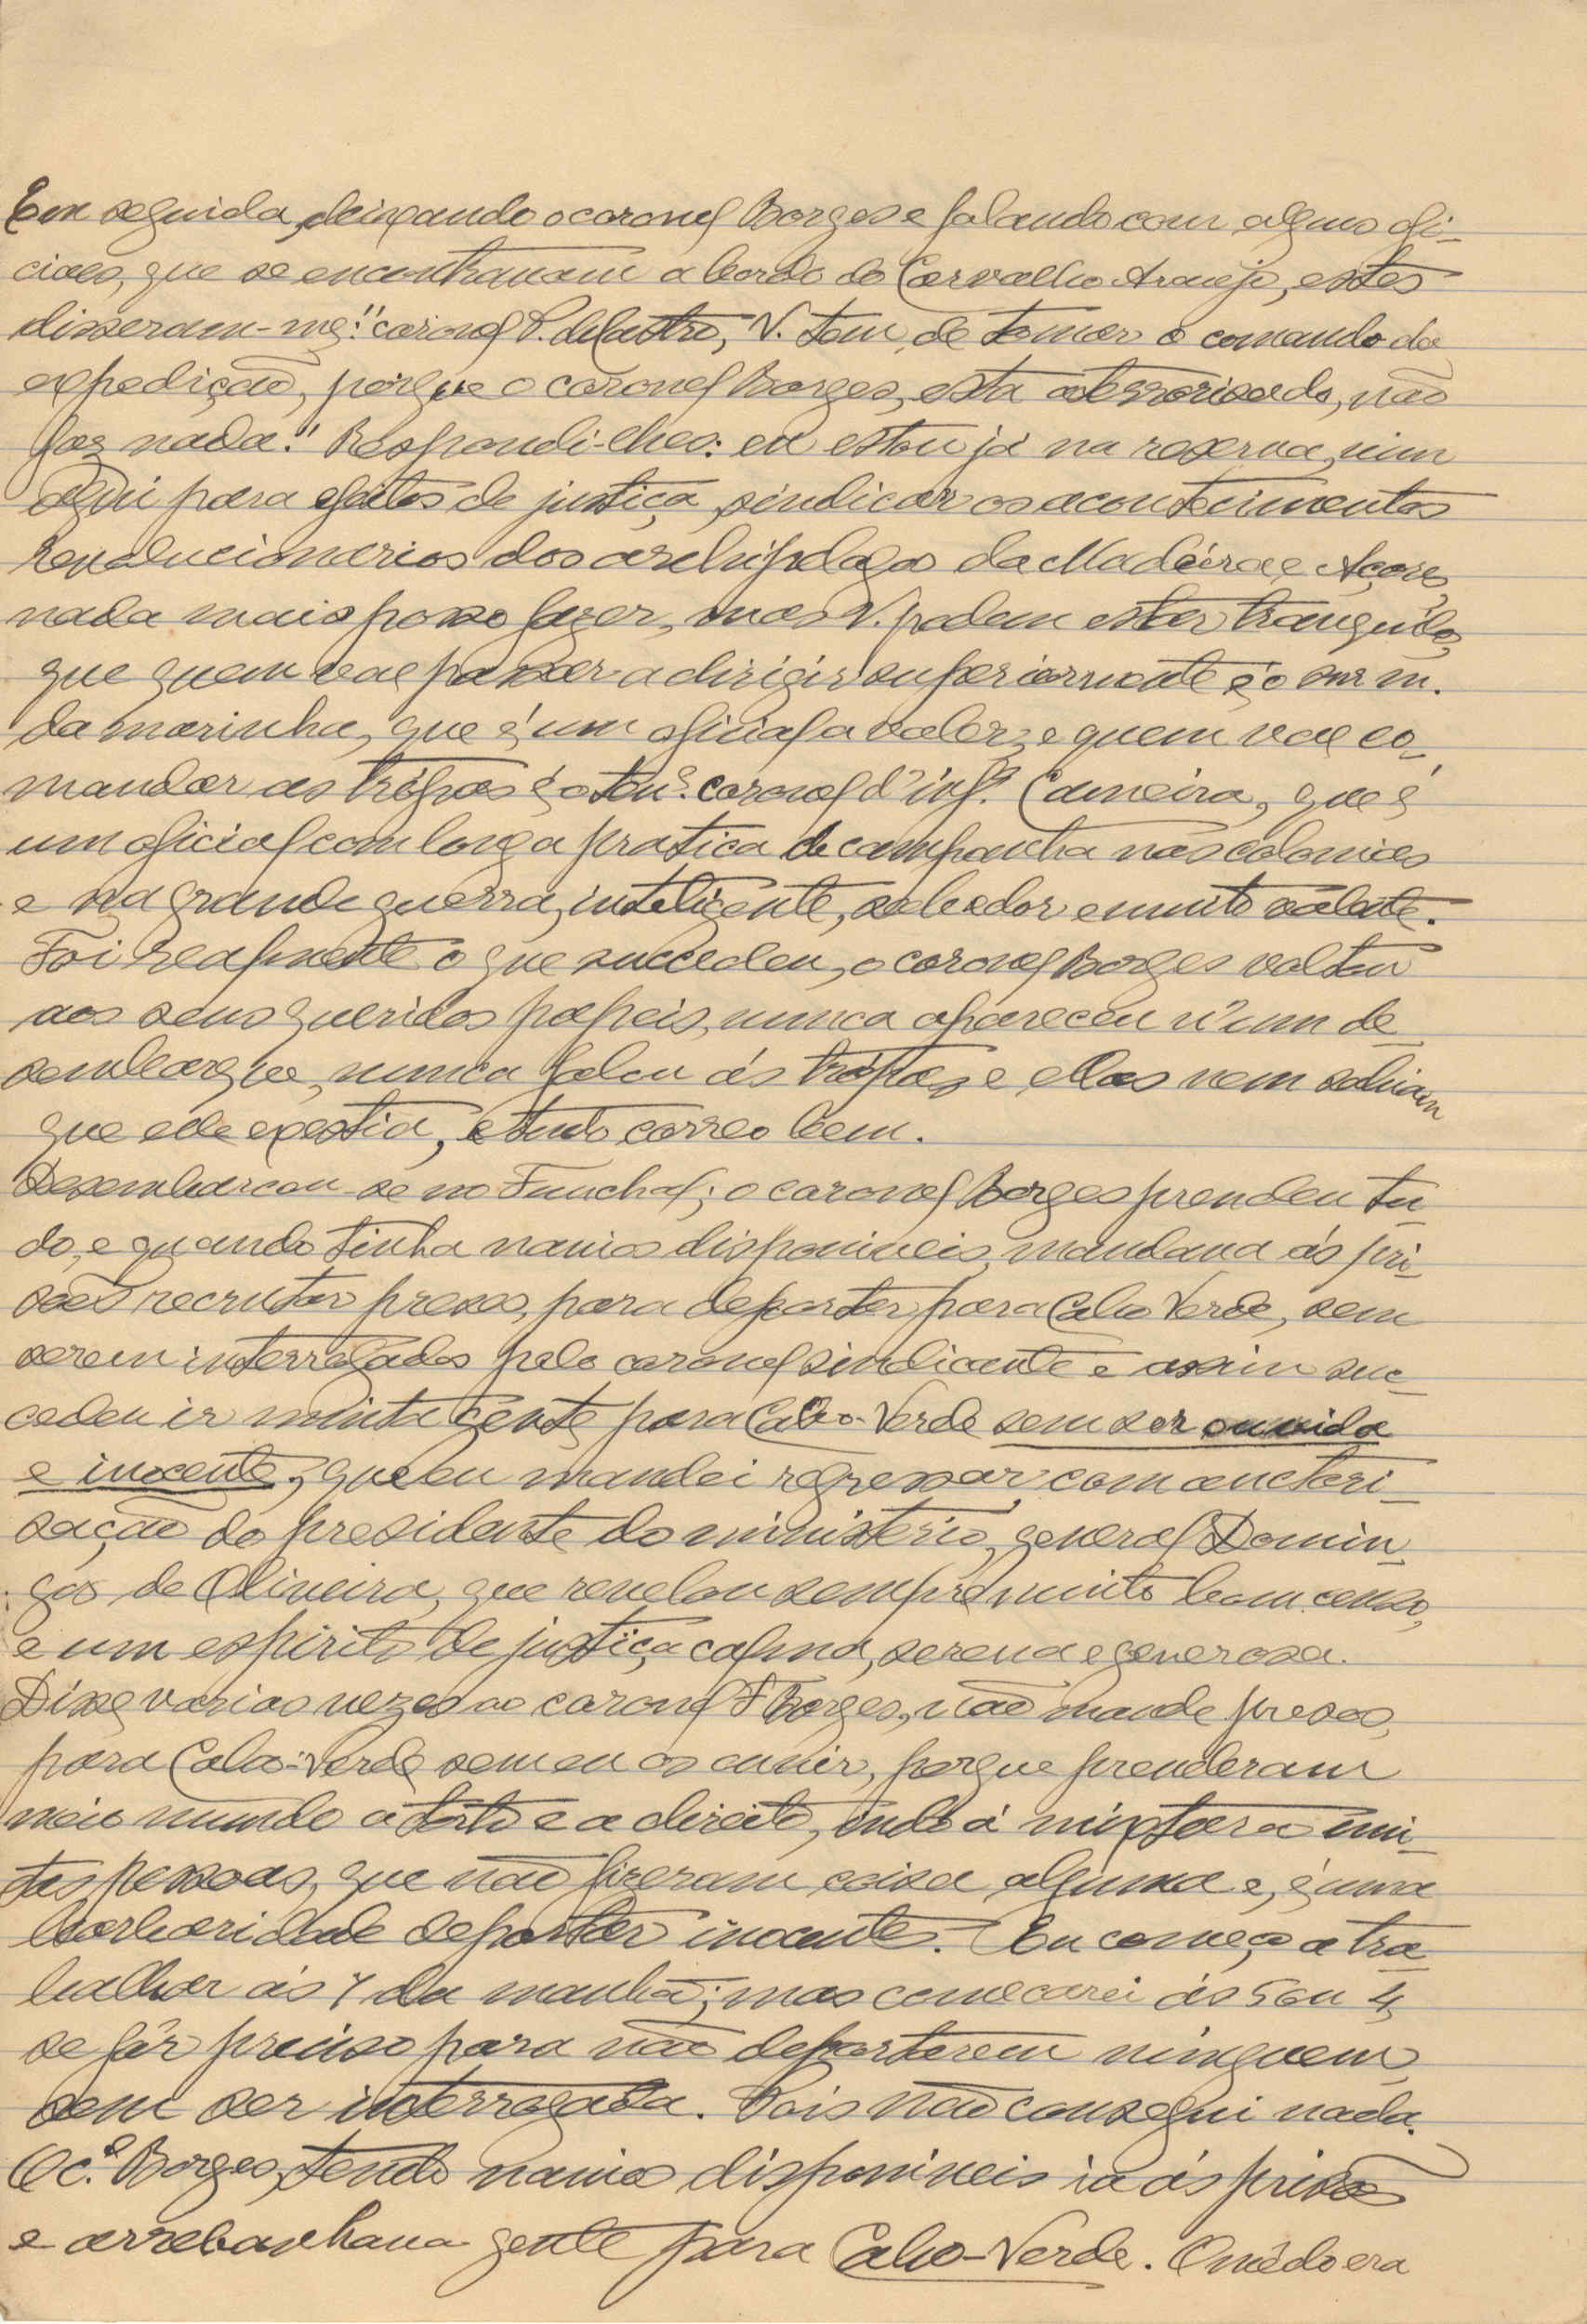 Em seguida, deixando o coronel Borges e falando com alguns ofi-
ciaes, que se encontravam a bordo do Carvalho Araujo, estes
disseram-me: "coronel P. de Castro, V. tem de tomar o comando da
expedição, porque o coronel Borges, está aterrorisado, não
faz nada." Respondi-lhes: eu estou já na reserva, vim
aqui para efeitos de justiça, sindicar os acontecimentos
revolucionarios dos archipelagos da Madeira e Açores,
nada mais posso fazer, mas V. podem estar tranquilos,
que quem vae passar a dirigir superiormente é o snr m.
da marinha, que é um oficial a valer, e quem vae co-
mandar as trópas é o ten.e coronel d'inf.a Cameira, que é
um oficial com longa pratica de campanha nas colonias
e na grande guerra, inteligente, sabedor e muito valente.
Foi realmente o que succedeu, o coronel Borges voltou
aos seus queridos papeis, nunca apareceu n'um de-
sembarque, nunca falou ás trópas, e ellas nem sabiam
que ele existia, e tudo correo bem.
Desembarcou-se no Funchal; o coronel Borges prendeu tu-
do, e quando tinha navios disponiveis, mandava ás pri-
sões recrutar presos, para deportar para Cabo Verde, sem
serem interrogados pelo coronel sindicante e assim suc-
cedeu ir muita gente para Cabo-Verde sem ser ouvida
e inocente, que eu mandei regressar com auctori-
sação do presidente do ministério, general Domin-
gos de Oliveira, que revelou sempre muito bom censo,
e um espirito de justiça calma, serena e generosa.
Disse varias vezes ao coronel F Borges, não mande presos,
para Cabo-Verde sem eu os ouvir, porque prenderam
meio mundo a torto e a direito, indo á mistura mui-
tas pessoas, que não fizeram coisa alguma e, é uma
barbaridade deportar inocentes. Eu começo a tra-
balhar ás 7 da manhã; mas começarei ás 5 ou 4,
se fôr preciso para não deportarem ninguem
sem ser interrogada. Pois não consegui nada.
O c.el Borges, tendo navios disponiveis ia ás prisões
e arrebanhava gente para Cabo-Verde. O mêdo era